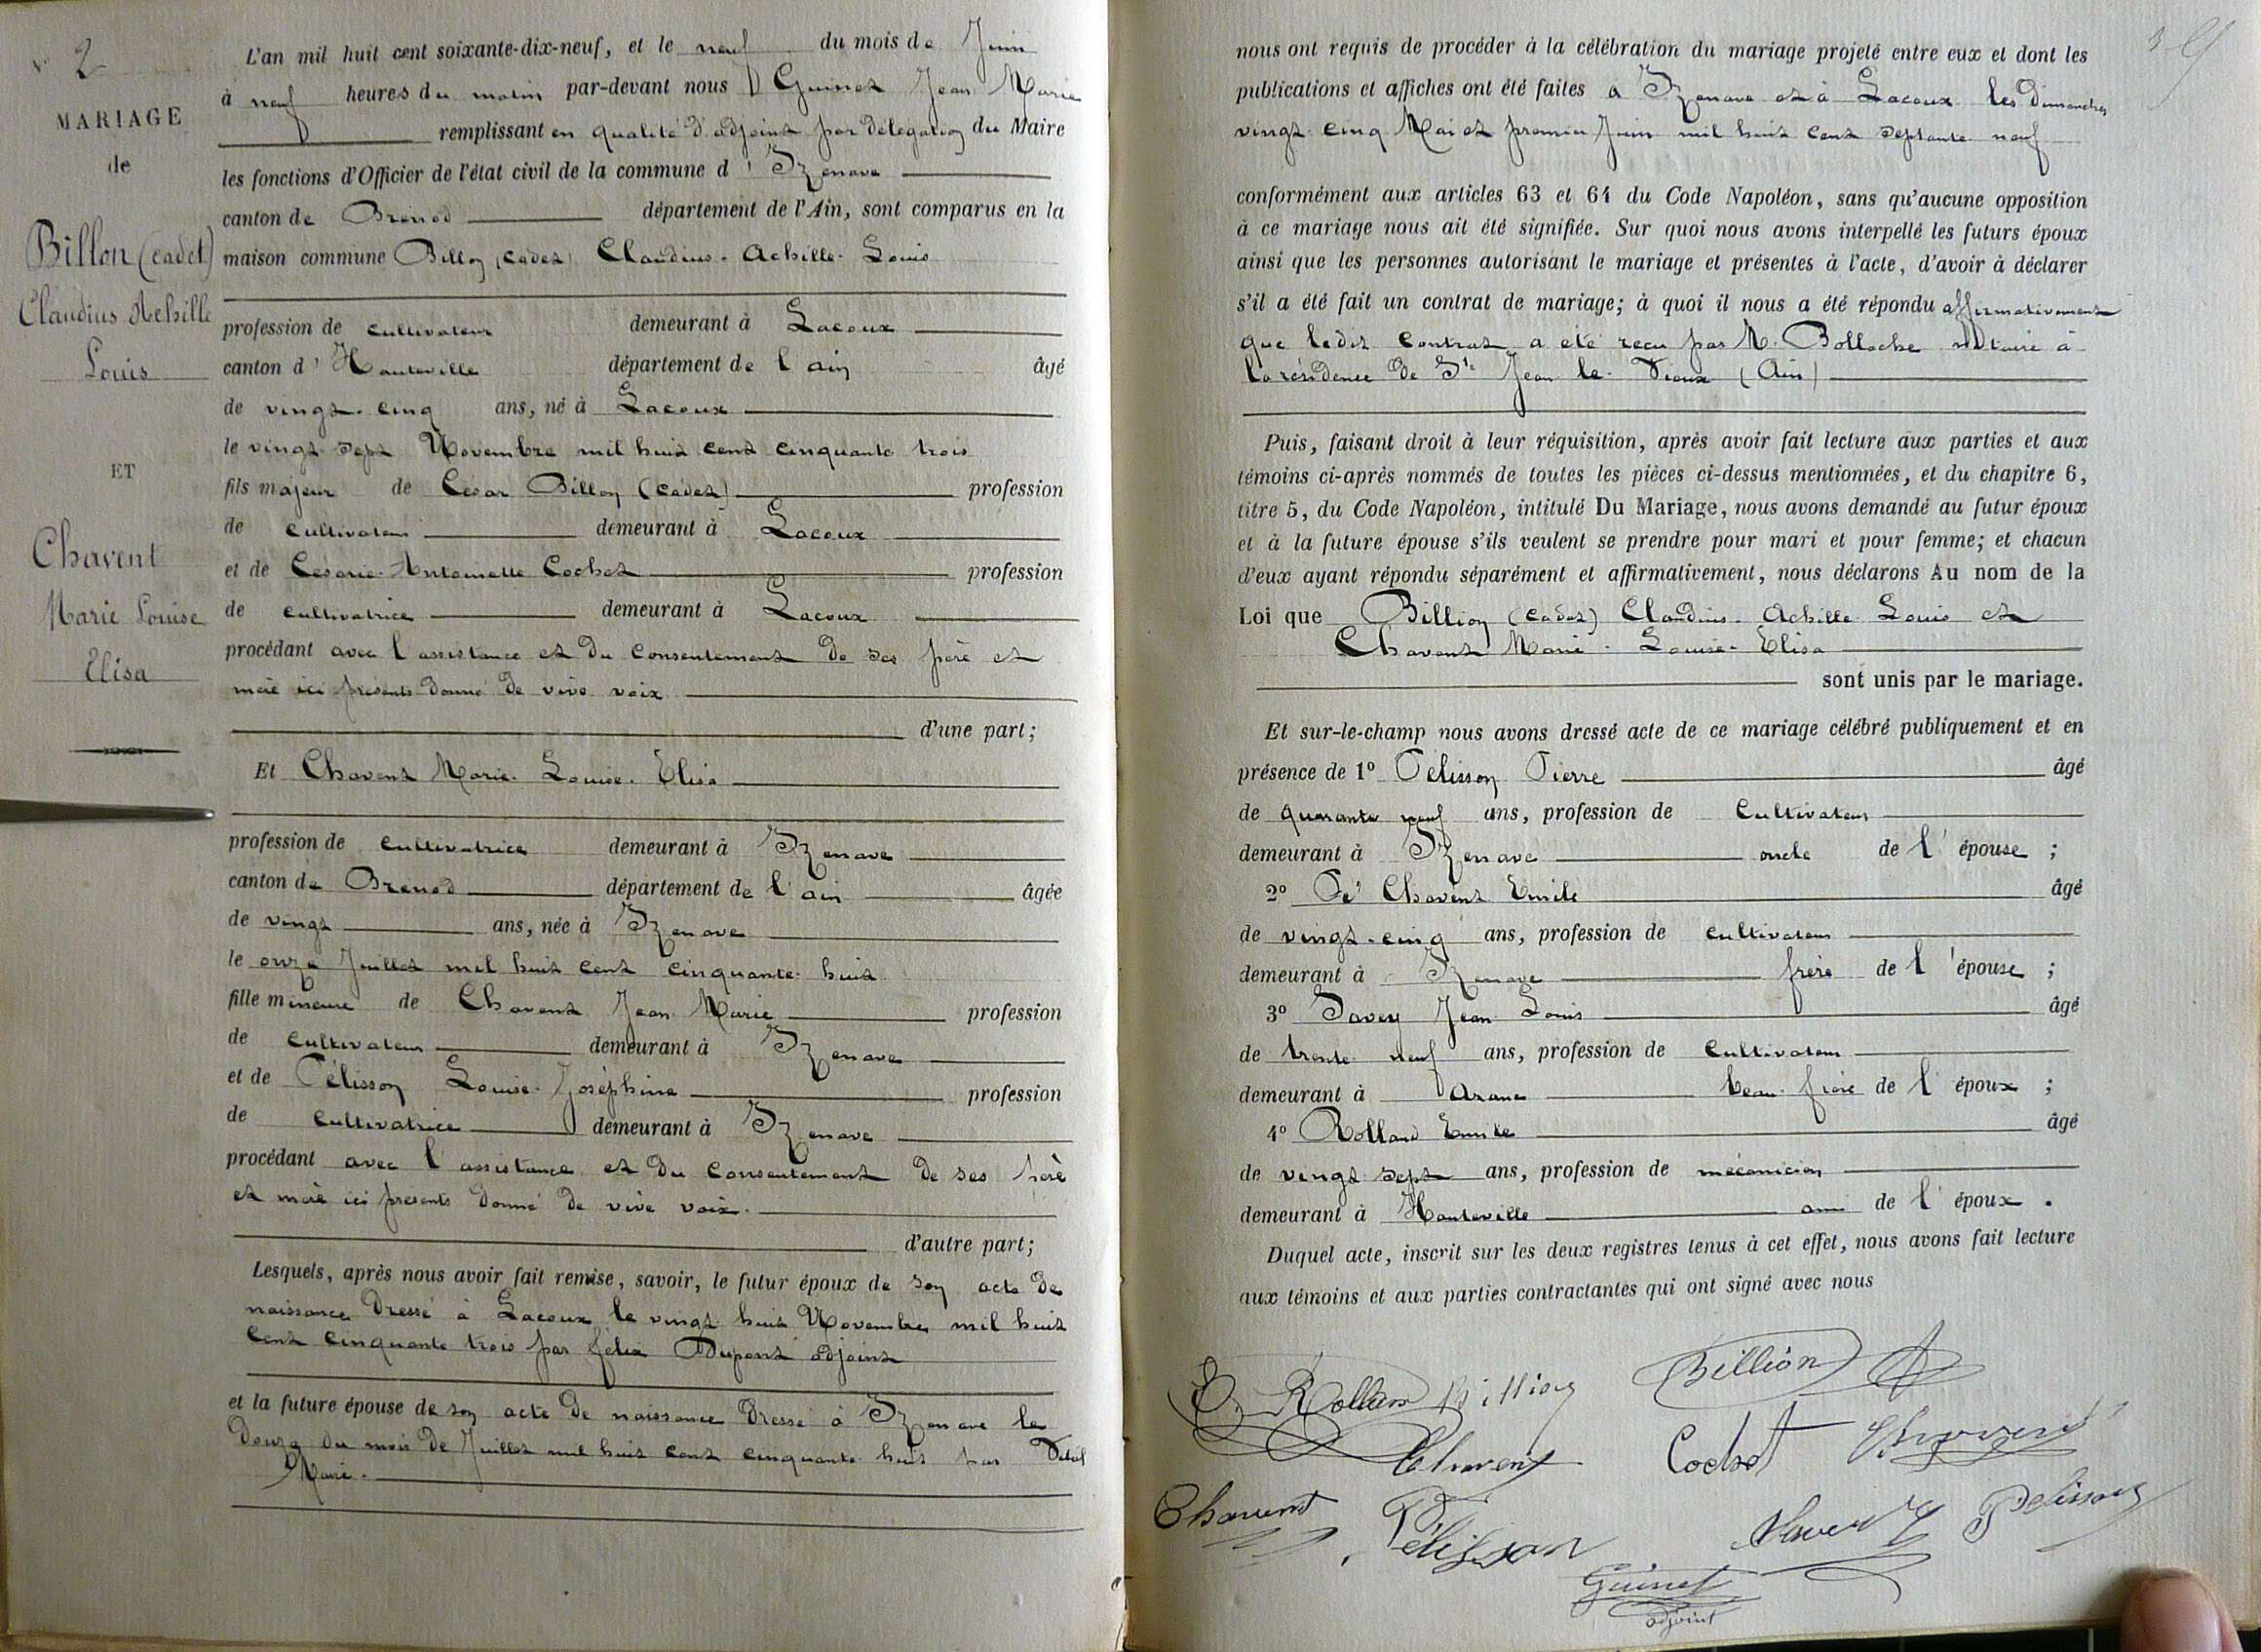 2
MARIAGE
de
Billon (cadet)
Claudius Achille
Louis
ET
Chavent
Marie Louise
Elisa
L'an mil huit cent soixante-dix-neuf, et le neuf du mois de Juin
à neuf heures du matin par-devant nous Guinet Jean Marie
remplissant en qualité d'adjoint par délégation du Maire
les fonctions d'Officier de l'état civil de la commune d'Izenave
canton de Brénod département de l'Ain, sont comparus en la
maison commune Billon (cadet) Claudius-Achille-Louis
profession de cultivateur demeurant à Lacoux
canton d'Hauteville département de l'ain âgé
de vingt-cinq ans, né à Lacoux
le vingt-sept Novembre mil huit cent cinquante trois
fils majeur de César Billon (cadet) profession
de cultivateur demeurant à Lacoux
et de Césarie-Antoinette Cochet profession
de cultivatrice demeurant à Lacoux
procédant avec l'assistance et du consentement de ses père et
mère ici présents donné de vive voix
d'une part;
Et Chavent Marie-Louise-Elisa
profession de cultivatrice demeurant à Izenave
canton de Brénod département de l'ain âgée
de vingt ans, née à Izenave
le onze Juillet mil huit cent cinquante-huit
fille mineure de Chavent Jean Marie profession
de cultivateur demeurant à Izenave
et de Pélisson Louise-Joséphine profession
de cultivatrice demeurant à Izenave
procédant avec l'assistance et du consentement de ses père
et mère ici présents donné de vive voix.
d'autre part;
Lesquels, après nous avoir fait remise, savoir, le futur époux de son acte de
naissance dressé à Lacoux le vingt huit Novembre mil huit
cent cinquante trois par félix Dupont adjoint
et la future épouse de son acte de naissance dressé à Izenave le
douze du mois de Juillet mil huit cent cinquante-huit par
Maire.
nous ont requis de procéder à la célébration du mariage projeté entre eux et dont les
publications et affiches ont été faites à Izenave et à Lacoux les dimanches
vingt-cinq Mai et premier Juin mil huit cent septante neuf
conformément aux articles 63 et 64 du Code Napoléon, sans qu'aucune opposition
à ce mariage nous ait été signifiée. Sur quoi nous avons interpellé les futurs époux
ainsi que les personnes autorisant le mariage et présentes à l'acte, d'avoir à déclarer
s'il a été fait un contrat de mariage; à quoi il nous a été répondu affirmativement
que ledit contrat a été reçu par M. Bolloche notaire à
la résidence de St Jean-le-Vieux (Ain)
Puis, faisant droit à leur réquisition, après avoir fait lecture aux parties et aux
témoins ci-après nommés de toutes les pièces ci-dessus mentionnées, et du chapitre 6,
titre 5, du Code Napoléon, intitulé Du Mariage, nous avons demandé au futur époux
et à la future épouse s'ils veulent se prendre pour mari et pour femme; et chacun
d'eux ayant répondu séparément et affirmativement, nous déclarons Au nom de la
Loi que Billion (cadet) Claudius-Achille-Louis et
Chavent Marie-Louise-Elisa
sont unis par le mariage.
Et sur-le-champ nous avons dressé acte de ce mariage célébré publiquement et en
présence de 1º Pélisson Pierre âgé
de quarante neuf ans, profession de Cultivateur
demeurant à Izenave oncle de l'épouse ;
2º Chavent Emile âgé
de vingt-cinq ans, profession de cultivateur
demeurant à Izenave frère de l'épouse ;
3º Savey Jean Louis âgé
de trente neuf ans, profession de cultivateur
demeurant à Aranc beau-frère de l'époux ;
4º Rolland Emile âgé
de vingt sept ans, profession de mécanicien
demeurant à Hauteville ami de l'époux .
Duquel acte, inscrit sur les deux registres tenus à cet effet, nous avons fait lecture
aux témoins et aux parties contractantes qui ont signé avec nous
Billion Billion
Chavent Cochet Chavent
Chavent Pélisson Savey Pelisson
Guinet
adjoint